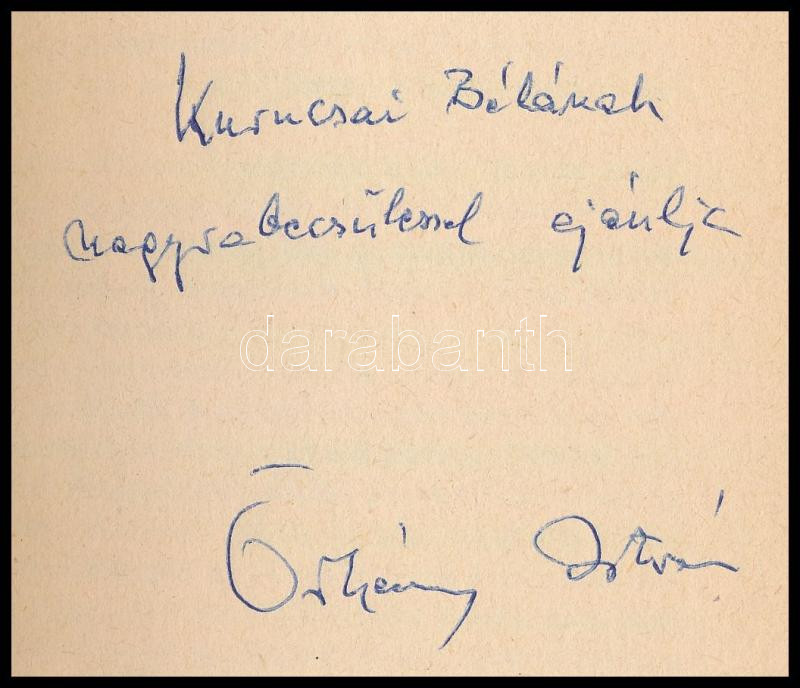 Kuruncsai Bélának
nagyrabecsüléssel ajánlja
darabanth
Örkény István